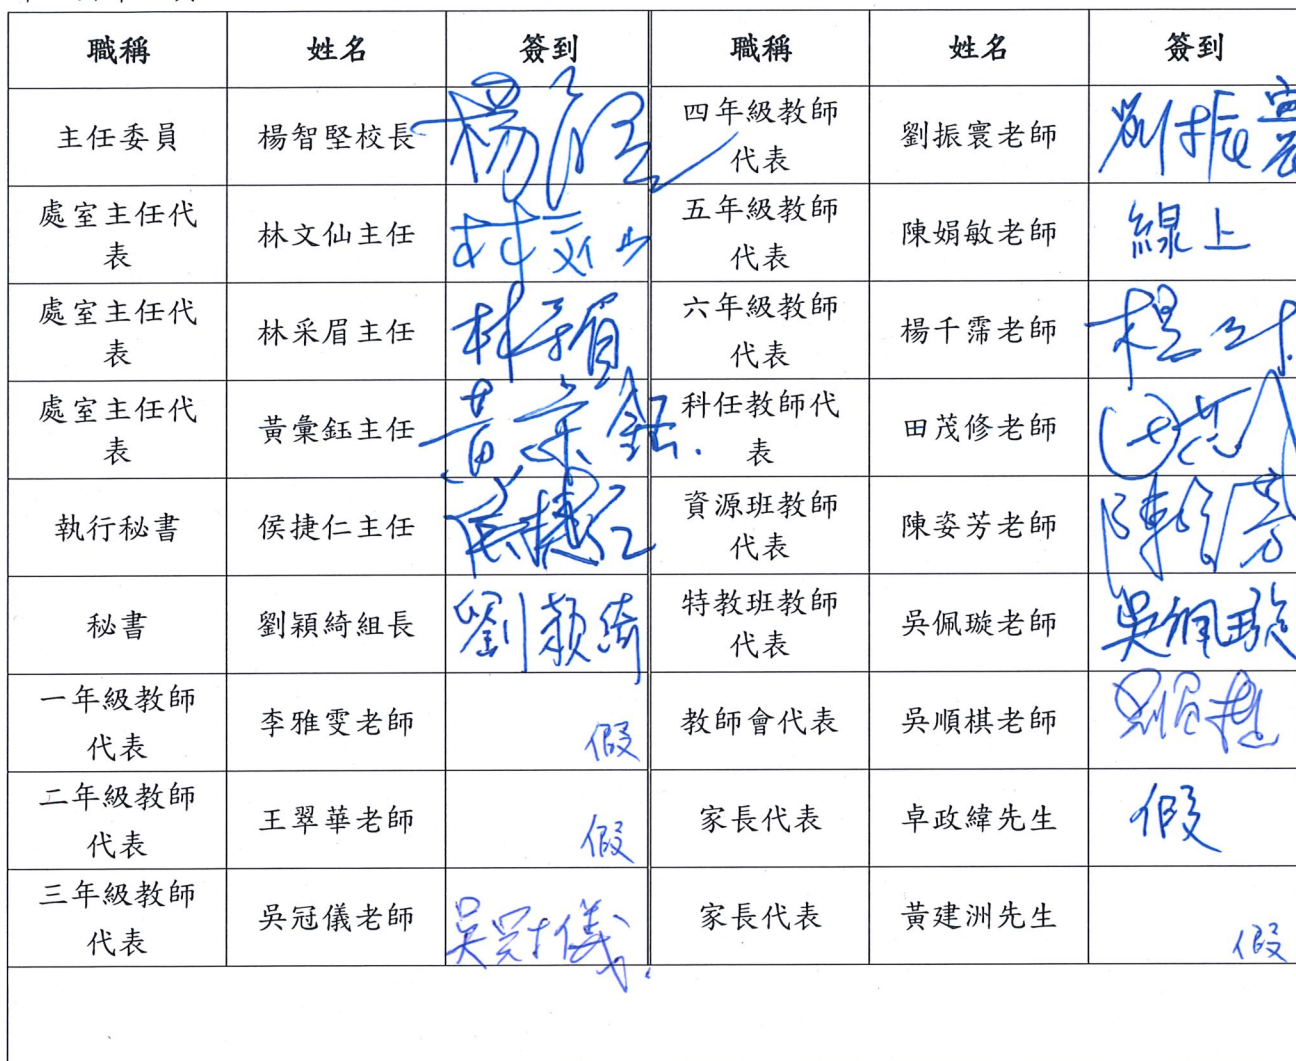 職稱 姓名 簽到 職稱 姓名 簽到
主任委員 楊智堅校長 楊 四年級教師
代表 劉振寰老師 劉振寰
處室主任代
表 林文仙主任 林文仙 五年級教師
代表 陳娟敏老師 線上
處室主任代
表 林采眉主任 林采眉 六年級教師
代表 楊千霈老師 楊
處室主任代
表 黃彙鈺主任 黃彙鈺 科任教師代
表 田茂修老師 田茂
執行秘書 侯捷仁主任 侯捷仁 資源班教師
代表 陳姿芳老師 陳姿芳
秘書 劉穎綺組長 劉穎綺 特教班教師
代表 吳佩璇老師 吳佩璇
一年級教師
代表 李雅雯老師 假 教師會代表 吳順棋老師 吳順棋
二年級教師
代表 王翠華老師 假 家長代表 卓政緯先生 假
三年級教師
代表 吳冠儀老師 吳冠儀 家長代表 黃建洲先生 假